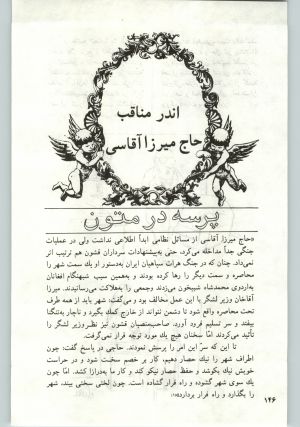 اندر مناقب
حاج میرزا آقاسی
پرسه در متون
«حاج میرزا آقاسی از مسائل نظامی ابداً اطلاعی نداشت ولی در عملیات
جنگی جداً مداخله می‌کرد، حتی به‌پیشنهادات سرداران قشون هم ترتیب اثر
نمی‌داد. چنان که در جنگ هرات سپاهیان ایران به‌دستور او یك سمت شهر را
محاصره و سمت دیگر را رها کرده بودند و به‌همین سبب شبهنگام افغانان
به‌اردوی محمدشاه شبیخون می‌زدند وجمعی را به‌هلاکت می‌رسانیدند. میرزا
آقاخان وزیر لشگر با این عمل مخالف بود و می‌گفت: شهر باید از همه طرف
تحت محاصره واقع شود تا دشمن نتواند از خارج کمك بگیرد و ناچار به‌تنگنا
بیفتد و سر تسلیم فرود آورد. صاحب‌منصبان قشون نیز نظر وزیر لشگر را
تأیید می‌کردند امّا سخنان هیچ یك مورد توجه قرار نمی‌گرفت.
تا این که سرّ این امر را پرسش نمودند. حاجی در پاسخ گفت: چون
اطراف شهر را نیك حصار دهیم، کار بر خصم سخت شود و در حراست
خویش نیك بکوشد و حفظ حصار نیکو کند و کار ما به‌درازا کشد. امّا چون
یك سوی شهر گشوده و راه فرار گشاده است. چون لختی سختی بیند، شهر
را بگذارد و راه فرار بردارد
۱۴۶